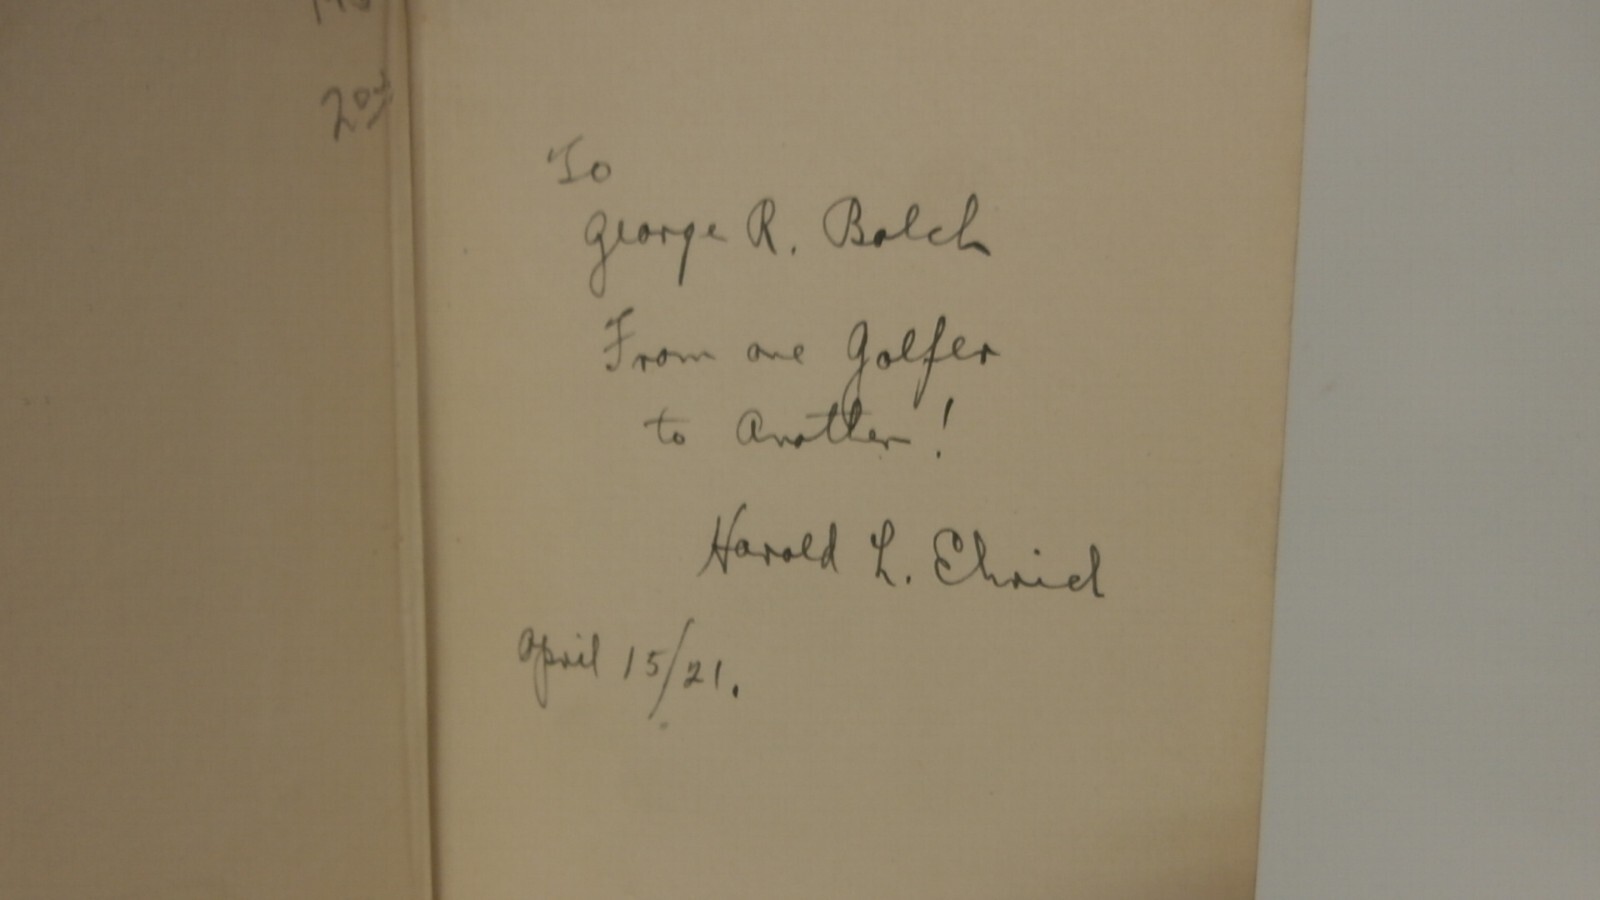 To
George R. Balch
From one Golfer
to Another!
Harold L.
April 15/21.